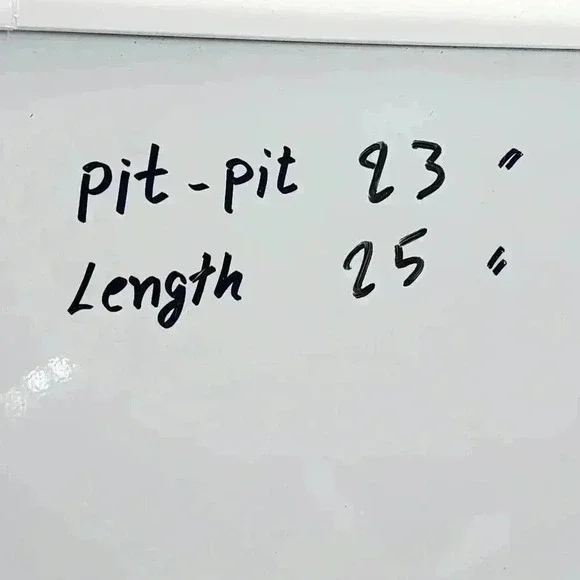 pit-pit 23 "
Length 25 "